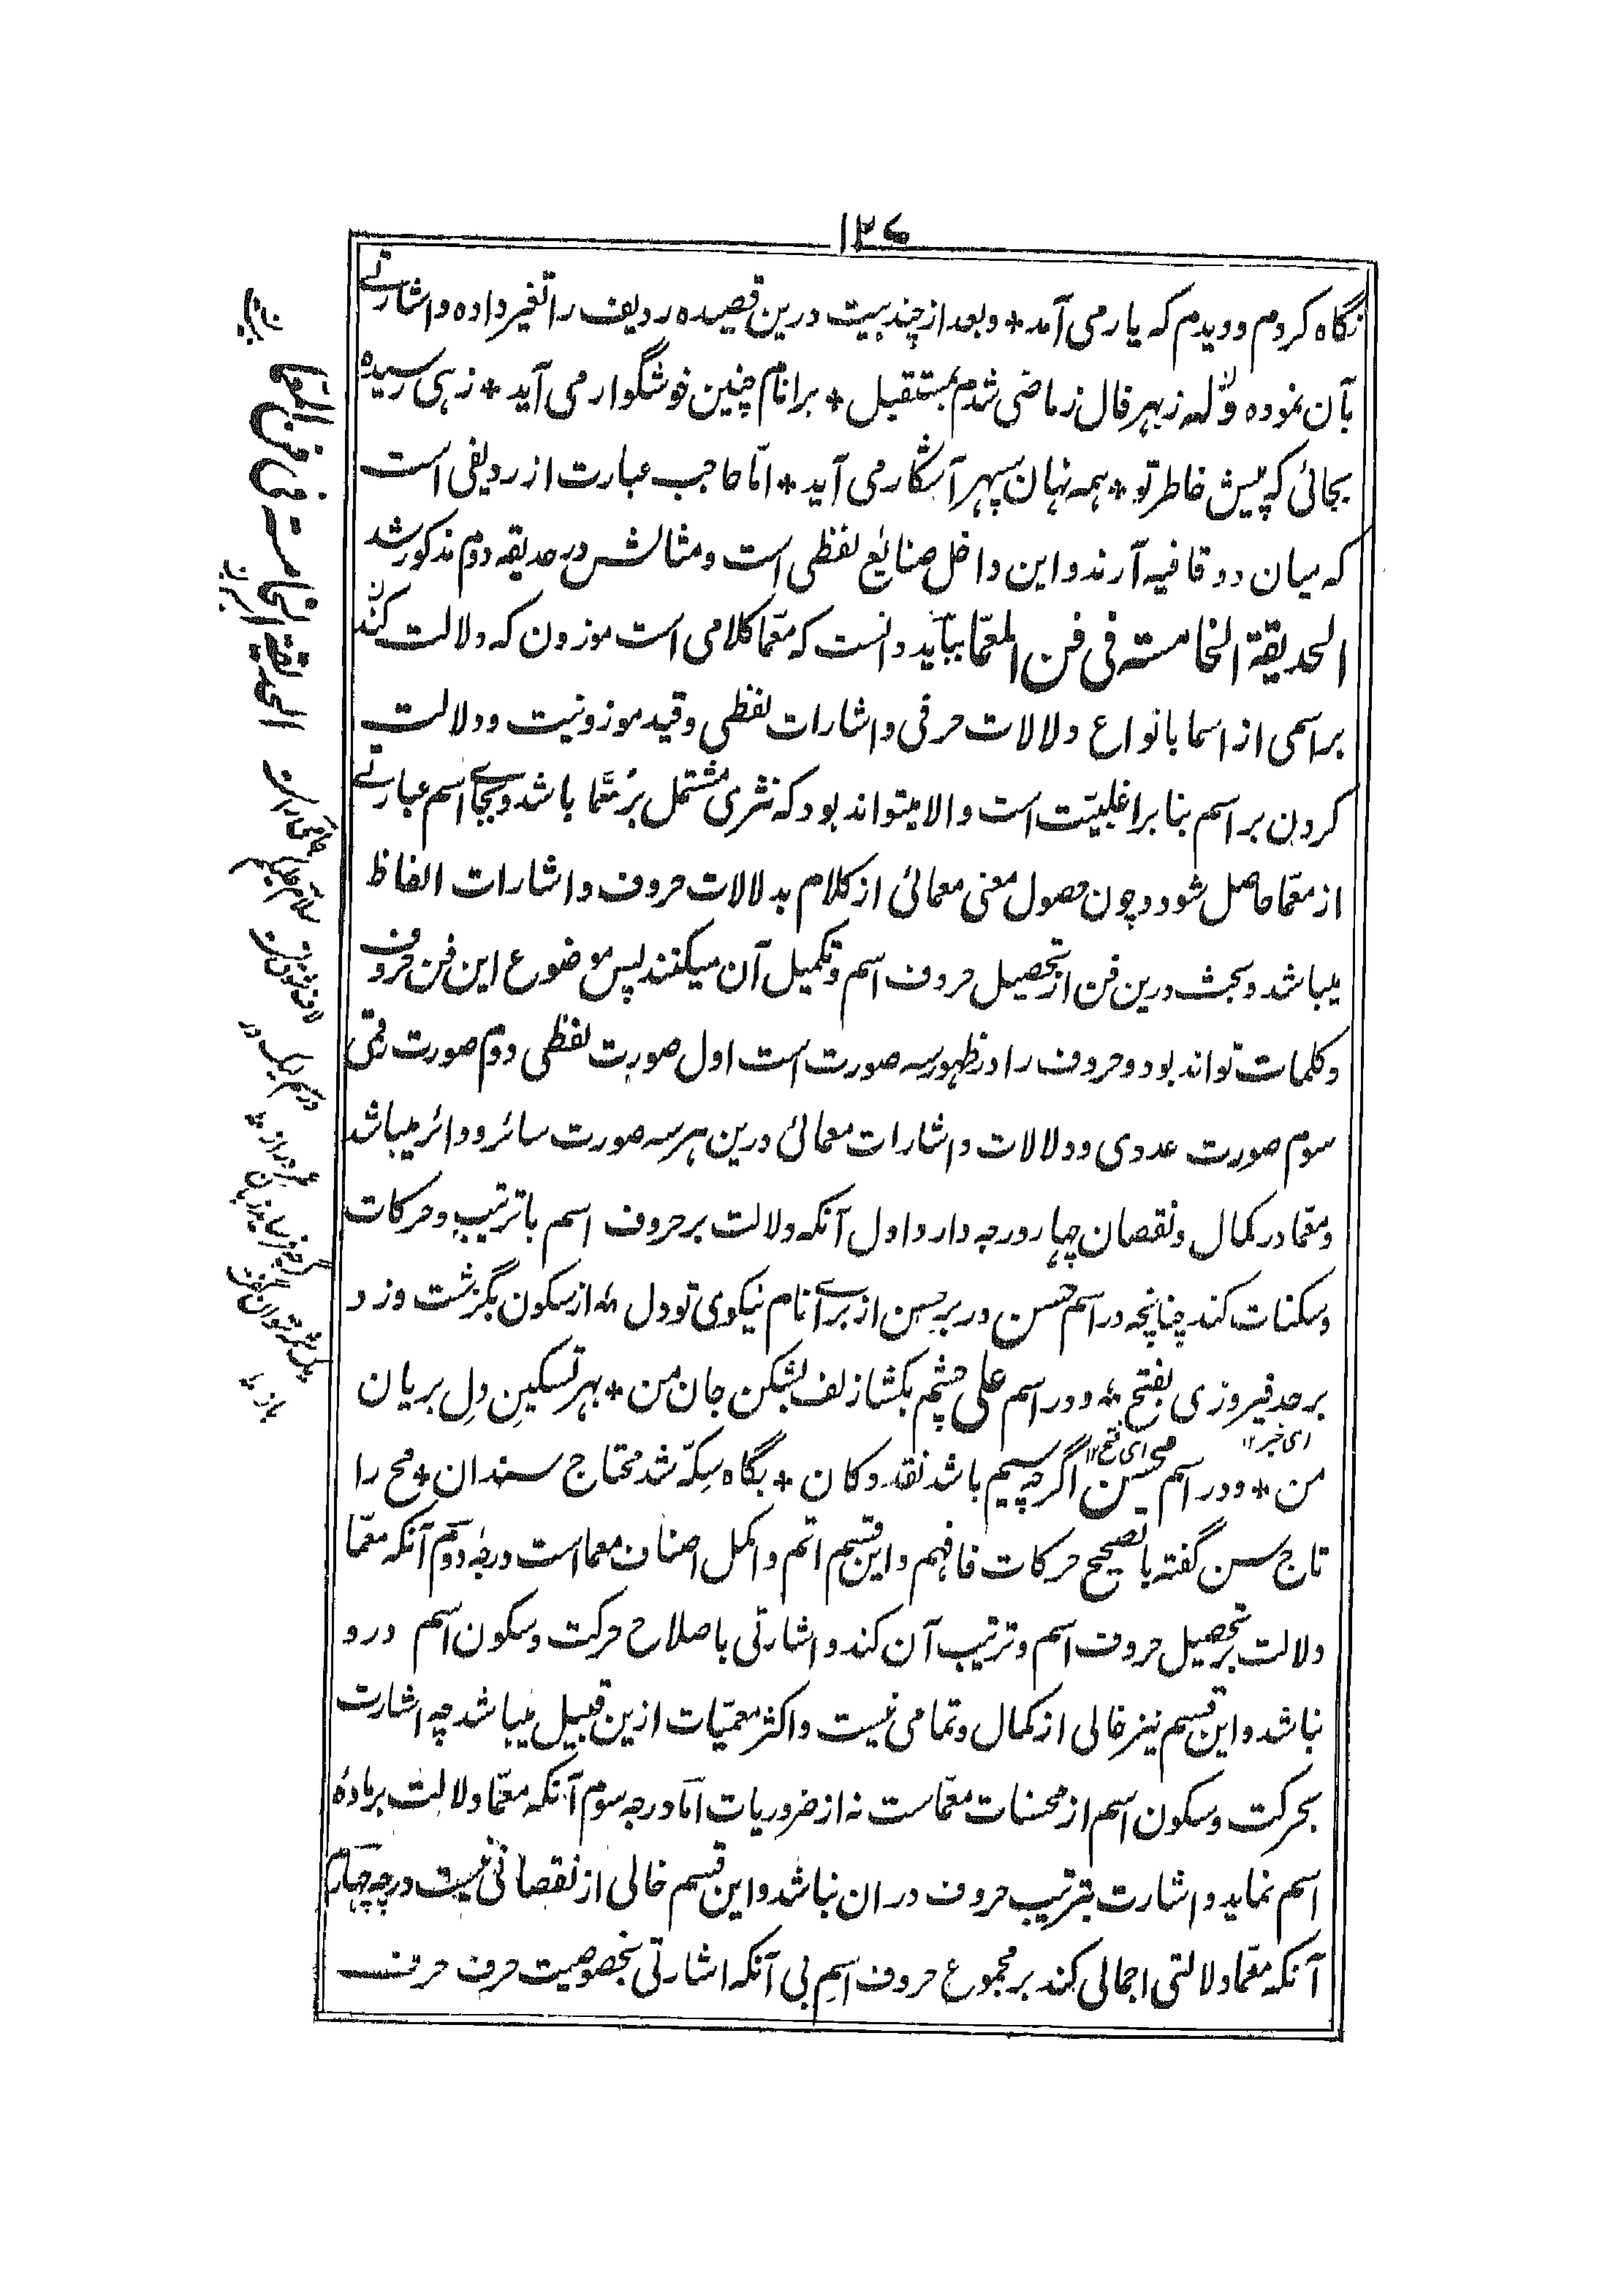 ۱۲۷
نگاه کردم و دیدم که یار می آمد * و بعد از چند بیت درین قصیده ردیف را تغیر داده و اشارتے
بآن نموده وله ز بهر فال ز ماضی شدم بمستقبل * برانام چنین خوشگوار می آید * زهی رسیده
بجائی که پیش خاطر تو * همه نهان سپهر آشکار می آید * امّا حاجب عبارت از ردیفی است
که میان دو قافیه آرند و این داخل صنایع لفظی است و مثالش در حدیقه دوم مذکور شد
الحدیقة الخامسته فی فن المعمّا بباید دانست که معمّا کلامی است موزون که دلالت کند
بر اسمی از اسما بانواع دلالات حرفی و اشارات لفظی و قید موزونیت و دلالت
کردن بر اسم بنا بر اغلبیّت است و الا میتواند بود که نثری مشتمل بر معّما باشد و بجاے اسم عبارتے
از معّما حاصل شود و چون حصول معنی معمائی از کلام بدلالات حروف و اشارات الفاظ
میباشد و بحث درین فن از تحصیل حروف اسم و تکمیل آن میکنند پس موضوع این فن حروف
و کلمات تواند بود و حروف را در ظهور سه صورت است اول صورت لفظی دوم صورت رقمی
سوم صورت عددی و دلالات و اشارات معمائی درین هر سه صورت سائر و دائر میباشد
و معّما در کمال و نقصان چهار درجه دارد اول آنکه دلالت بر حروف اسم با ترتیب و حرکات
و سکنات کند چنانچه در اسم حسن در بر حسن از براے آنام نیکوی تو دل * از سکون بگزشت و زد
بر حد فیروزی بفتح * و در اسم علی چشم بکشا زلف بشکن جان من * بهر تسکینِ دلِ بریان
ای خبر ۱۲
ای فتح ۱۲
من * و در اسم محسن اگرچه سیم باشد نقد دکان * بگاه سِکّه شد محتاج سندان * مح را
تاج سن گفته با تصحیح حرکات فافهم و این قسم اتم و اکمل اصناف معما است درجهٔ دوّم آنکه معّما
دلالت بر تحصیل حروف اسم و ترتیب آن کند و اشارتی باصلاح حرکت و سکون اسم درو
نباشد و این قسم نیز خالی از کمال و تمامی نیست و اکثر معمیّات ازین قبیل میباشد چه اشارت
بحرکت و سکون اسم از محسنات معمّاست نه از ضروریات امّا درجه سوم آنکه معمّا دلالت بر مادهٔ
اسم نماید و اشارت بترتیب حروف در ان نباشد و این قسم خالی از نقصانی نیست درجه چهارم
آنکه معمّا دلالتی اجمالی کند بر مجموع حروف اسم بی آنکه اشارتی بخصوصیت حرف حرف
الحدیقة الخامسته فی فن المعما